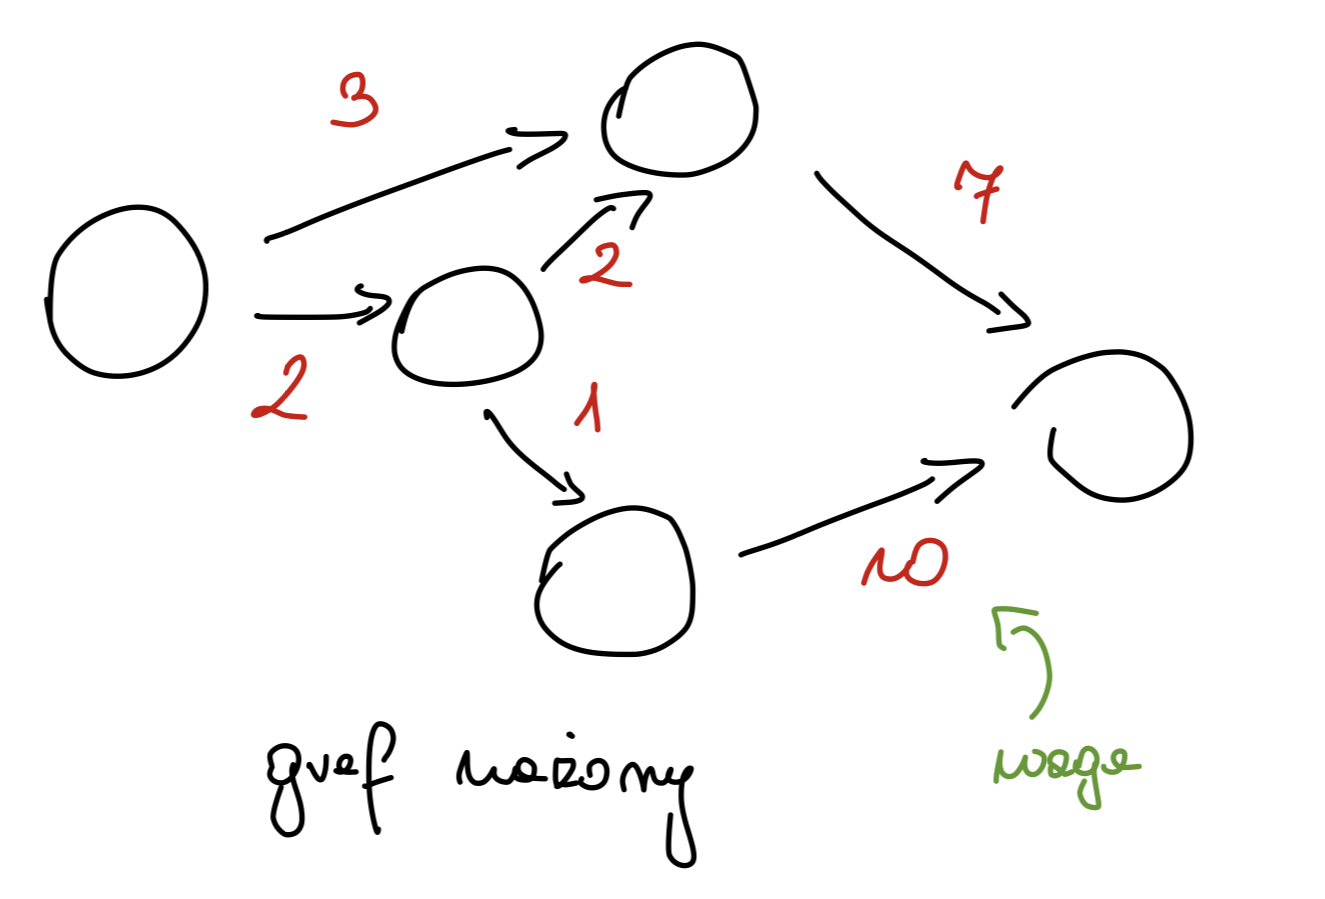 3
7
2
2
1
10
graf ważony
waga